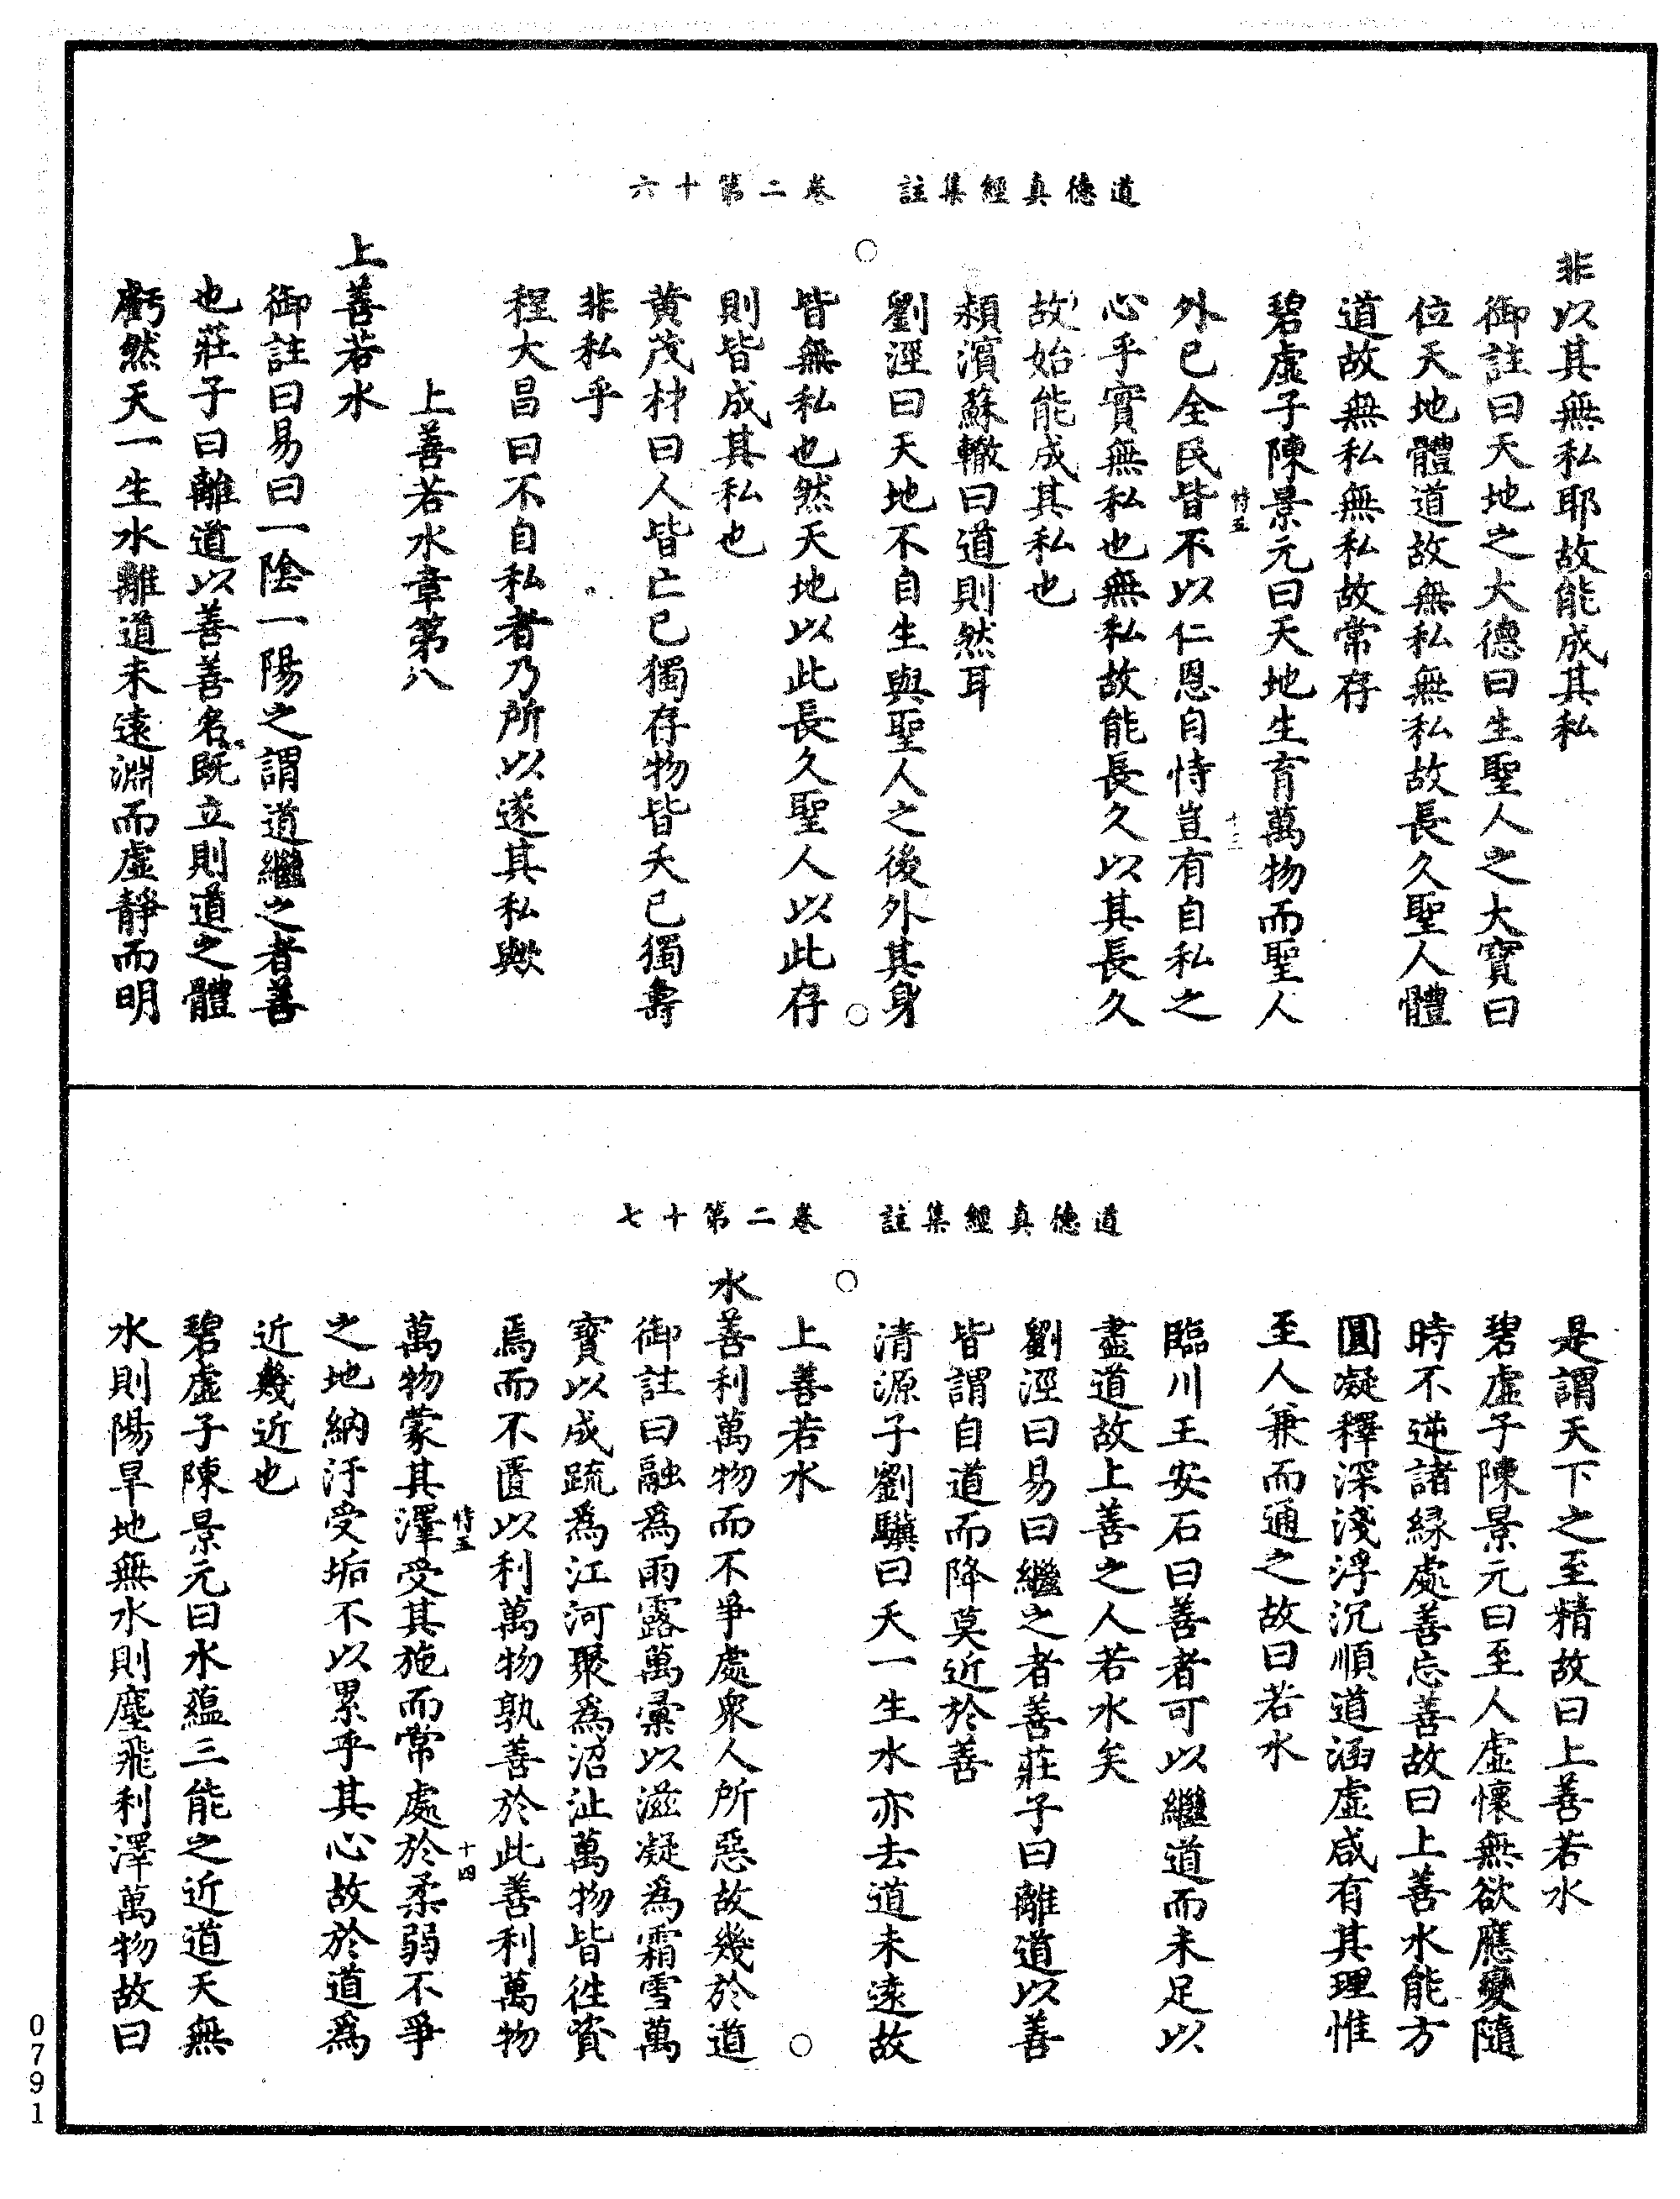 道德真經集註　卷二第十六
非以其無私耶故能成其私
御註曰天地之大德曰生聖人之大寶曰
位天地體道故無私無私故長久聖人體
道故無私無私故常存
碧虛子陳景元曰天地生育萬物而聖人
恃五
十三
外已全民皆不以仁恩自恃豈有自私之
心乎實無私也無私故能長久以其長久
故始能成其私也
潁濱蘇轍曰道則然耳
劉涇曰天地不自生與聖人之後外其身
皆無私也然天地以此長久聖人以此存
則皆成其私也
黃茂材曰人皆亡已獨存物皆夭已獨壽
非私乎
程大昌曰不自私者乃所以遂其私歟
上善若水章第八
上善若水
御註曰易曰一陰一陽之謂道繼之者善
也莊子曰離道以善善名既立則道之體
虧然天一生水離道未遠淵而虛靜而明
道德真經集註　卷二第十七
是謂天下之至精故曰上善若水
碧虛子陳景元曰至人虛懷無欲應變隨
時不逆諸緣處善忘善故曰上善水能方
圓凝釋深淺浮沉順道涵虛咸有其理惟
至人兼而通之故曰若水
臨川王安石曰善者可以繼道而未足以
盡道故上善之人若水矣
劉涇曰易曰繼之者善莊子曰離道以善
皆謂自道而降莫近於善
清源子劉驥曰天一生水亦去道未遠故
上善若水
水善利萬物而不爭處眾人所惡故幾於道
御註曰融為雨露萬彙以滋凝為霜雪萬
寶以成疏為江河聚為沼沚萬物皆往資
焉而不匱以利萬物孰善於此善利萬物
恃五
十四
萬物蒙其澤受其施而常處於柔弱不爭
之地納汙受垢不以累乎其心故於道為
近幾近也
碧虛子陳景元曰水蘊三能之近道天無
水則陽旱地無水則塵飛利澤萬物故曰
0791